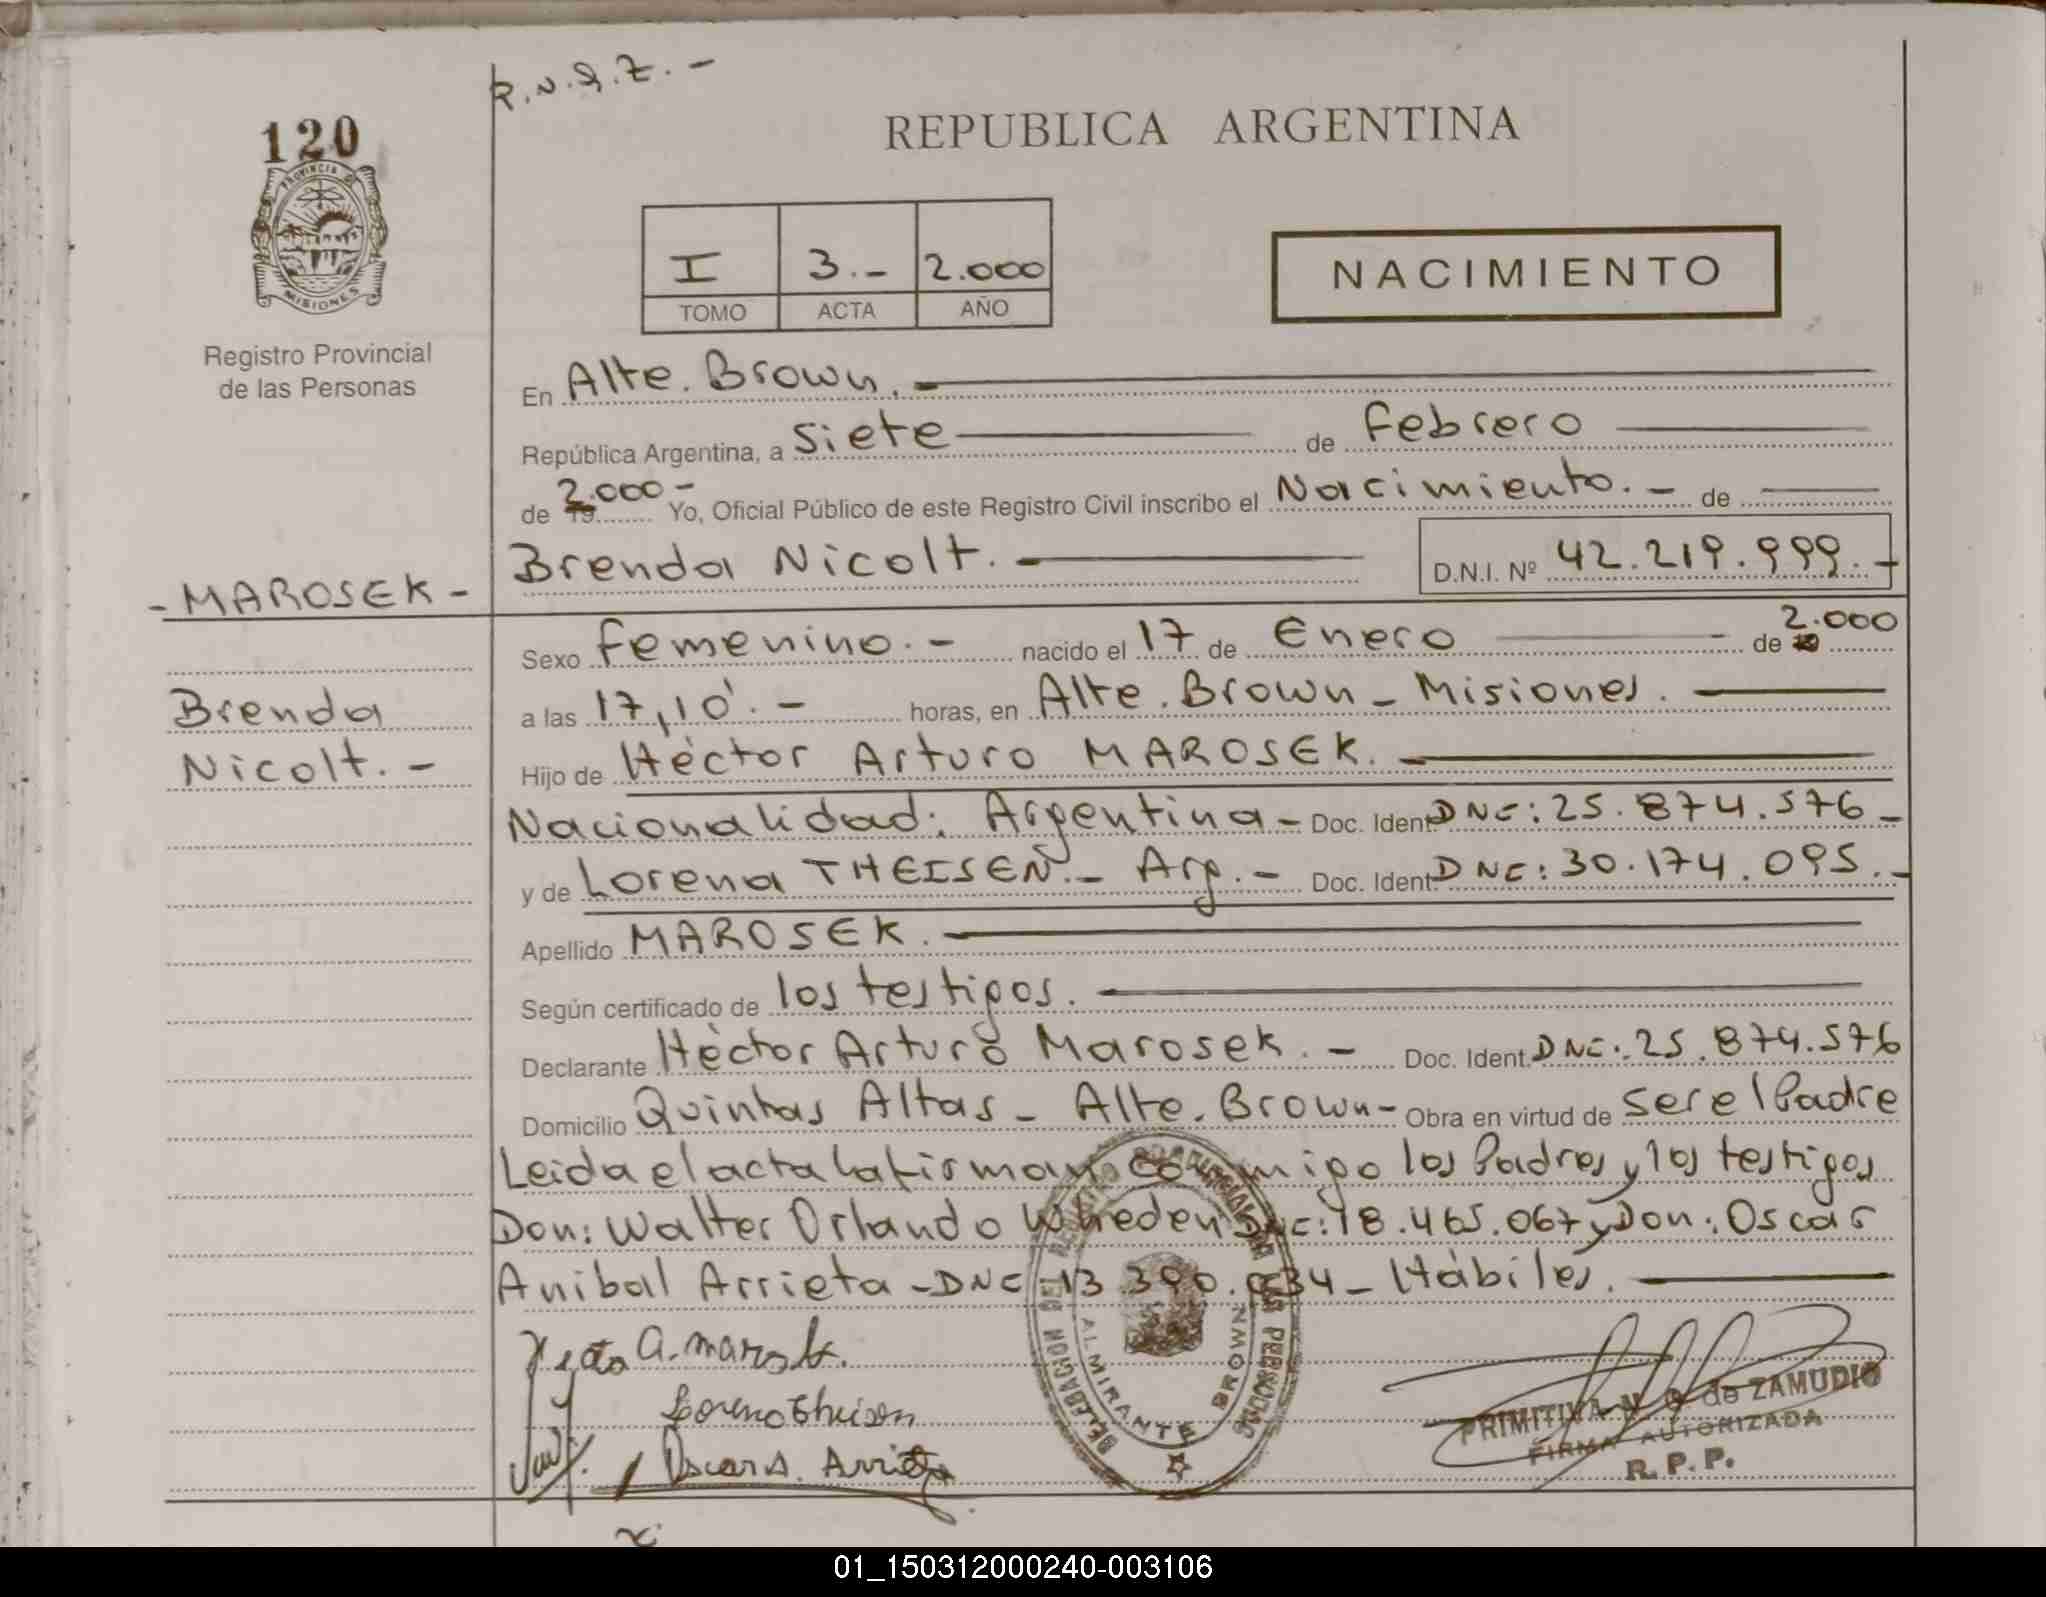 R.N.G.Z. -
120
PROVINCIA DE
MISIONES
Registro Provincial
de las Personas
REPUBLICA ARGENTINA
I 3.- 2.000
TOMO ACTA AÑO
NACIMIENTO
En Alte. Brown. -
República Argentina, a siete de Febrero
de 2.000 - 19 Yo, Oficial Público de este Registro Civil inscribo el Nacimiento. - de
Brenda Nicolt. - D.N.I. Nº 42.219.999. -
- MAROSEK -
Sexo Femenino. - nacido el 17 de Enero de 2.000
Brenda
a las 17,10'. - horas, en Alte. Brown - Misiones. -
Nicolt. -
Hijo de Héctor Arturo MAROSEK. -
Nacionalidad: Argentina - Doc. Ident. DNC: 25.874.576 -
y de Lorena THEISEN. - Arg. - Doc. Ident. DNC: 30.174.095. -
Apellido MAROSEK. -
Según certificado de los testigos. -
Declarante Hèctor Arturo Marosek. - Doc. Ident. DNC: 25.874.576
Domicilio Quintas Altas - Alte. Brown - Obra en virtud de ser el Padre
Leida el acta la firman conmigo los Padres y los testigos
Don: Walter Orlando Wheden DNC: 18.465.067 y Don: Oscar
Anibal Arrieta - DNC 13.390.034 - Hábiles. -
A. Marosek.
Lorena Theisen
Oscar A. Arrieta
DELEGACION DEL REGISTRO PROVINCIAL DE LAS PERSONAS
ALMIRANTE BROWN
PRIMITIVA N. G. de ZAMUDIO
FIRMA AUTORIZADA
R. P. P.
01_150312000240-003106